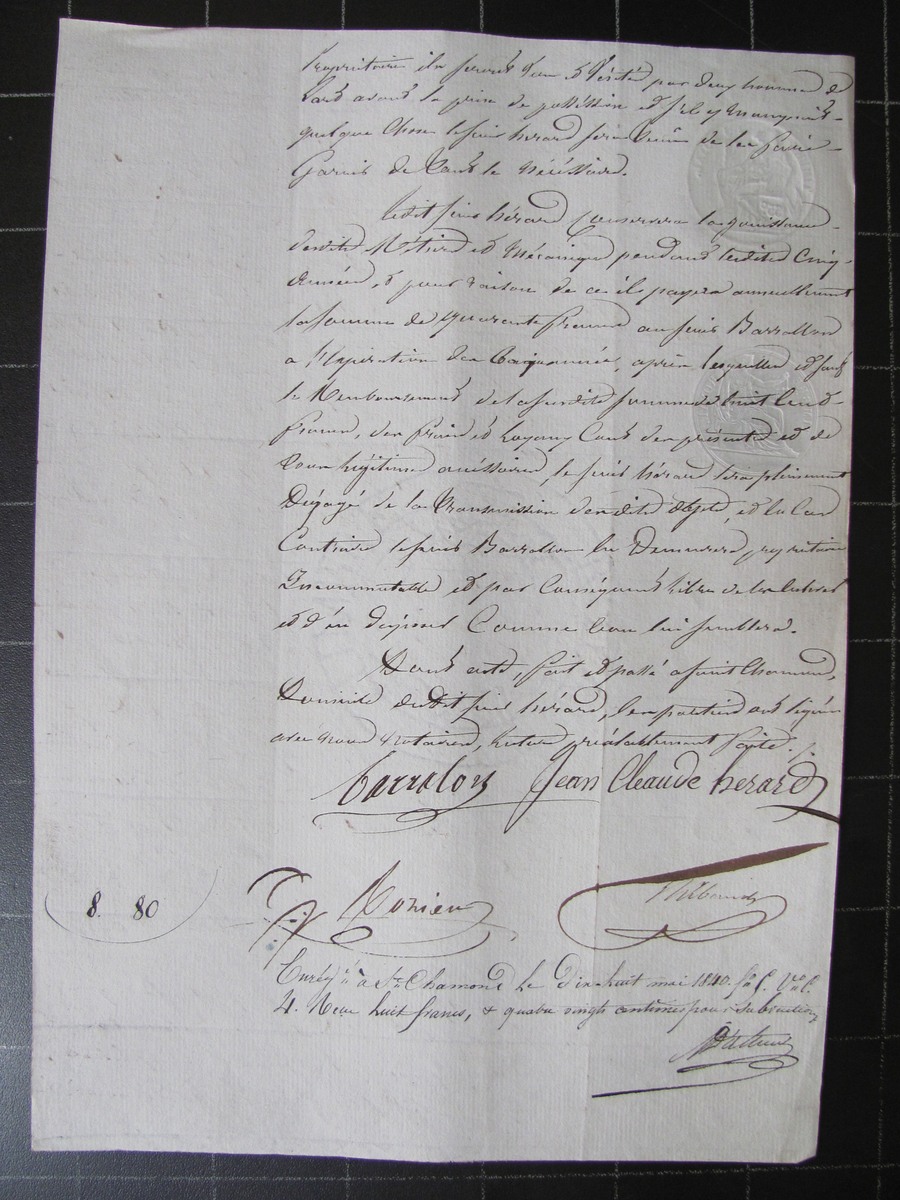 Propriétaire ils seront par deux hommes de
l'art avant la prise de possession et s'il y manquait
quelque chose le sieur hérard sera tenu de les faire
Garnir de tout le nécéssaire.
Ledit sieur hérard Conservera la jouissance
desdits Métiers et Mécaniques pendant lesdites Cinq
Années, et pour raison de ce il payera annuellement
la somme de quarante francs au sieur Barrallon
a l'Expiration des années, après lesquelles et
le Remboursement de la susdite somme de huit Cents
francs, des frais et Loyaux Couts des présentes et de
tous légitimes accéssoires, le sieur hérard sera pleinement
Dégagé de la transmission desdits objets, et au Cas
Contraire le sieur Barrallon en Demeurera propriétaire
Incommutable et par Conséquent libre de les enlever
et d'en disposer Comme bon lui semblera.
Dont acte, fait et passé a saint Chamond,
Domicile dudit sieur hérard, les parties ont signé
avec nous Notaires, lecture préalablement faite.
barralon Jean Cleaude herard
8. 80
Enreg.é à St. Chamond le dix huit mai 1840. f.o
4. Reçu huit francs, & quatre vingt centimes pour subvention